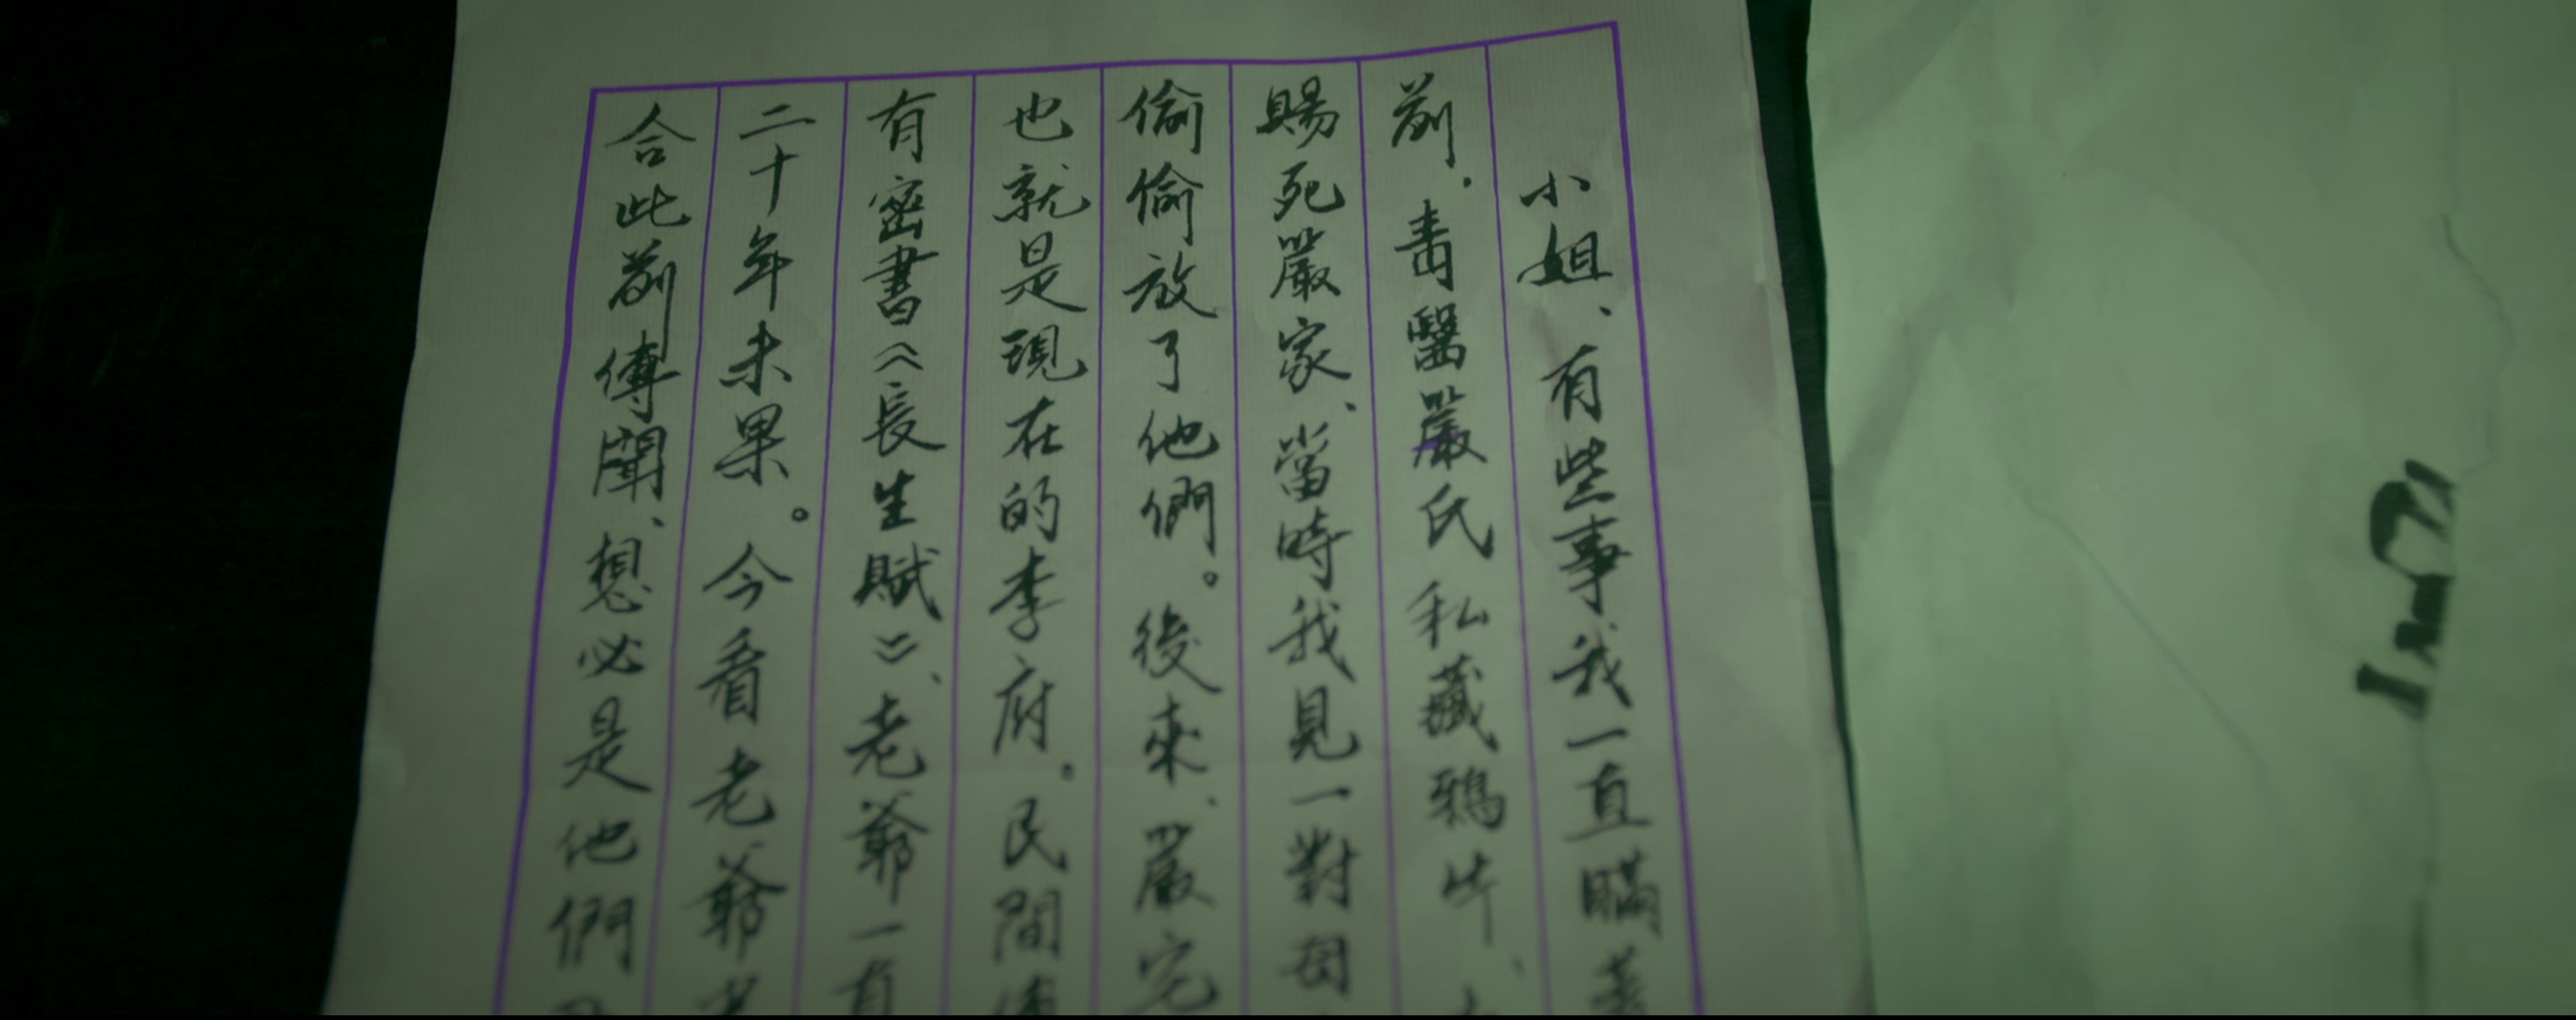 小姐、有些事我一直瞞著
前．毒醫嚴氏私藏鴉片、
賜死嚴家、當時我見一對母
偷偷放了他們。後來、嚴宅
也就是現在的李府．民間傳
有密書《長生賦》、老爺一直
二十年未果。今看老爺
合此前傳聞、想必是他們